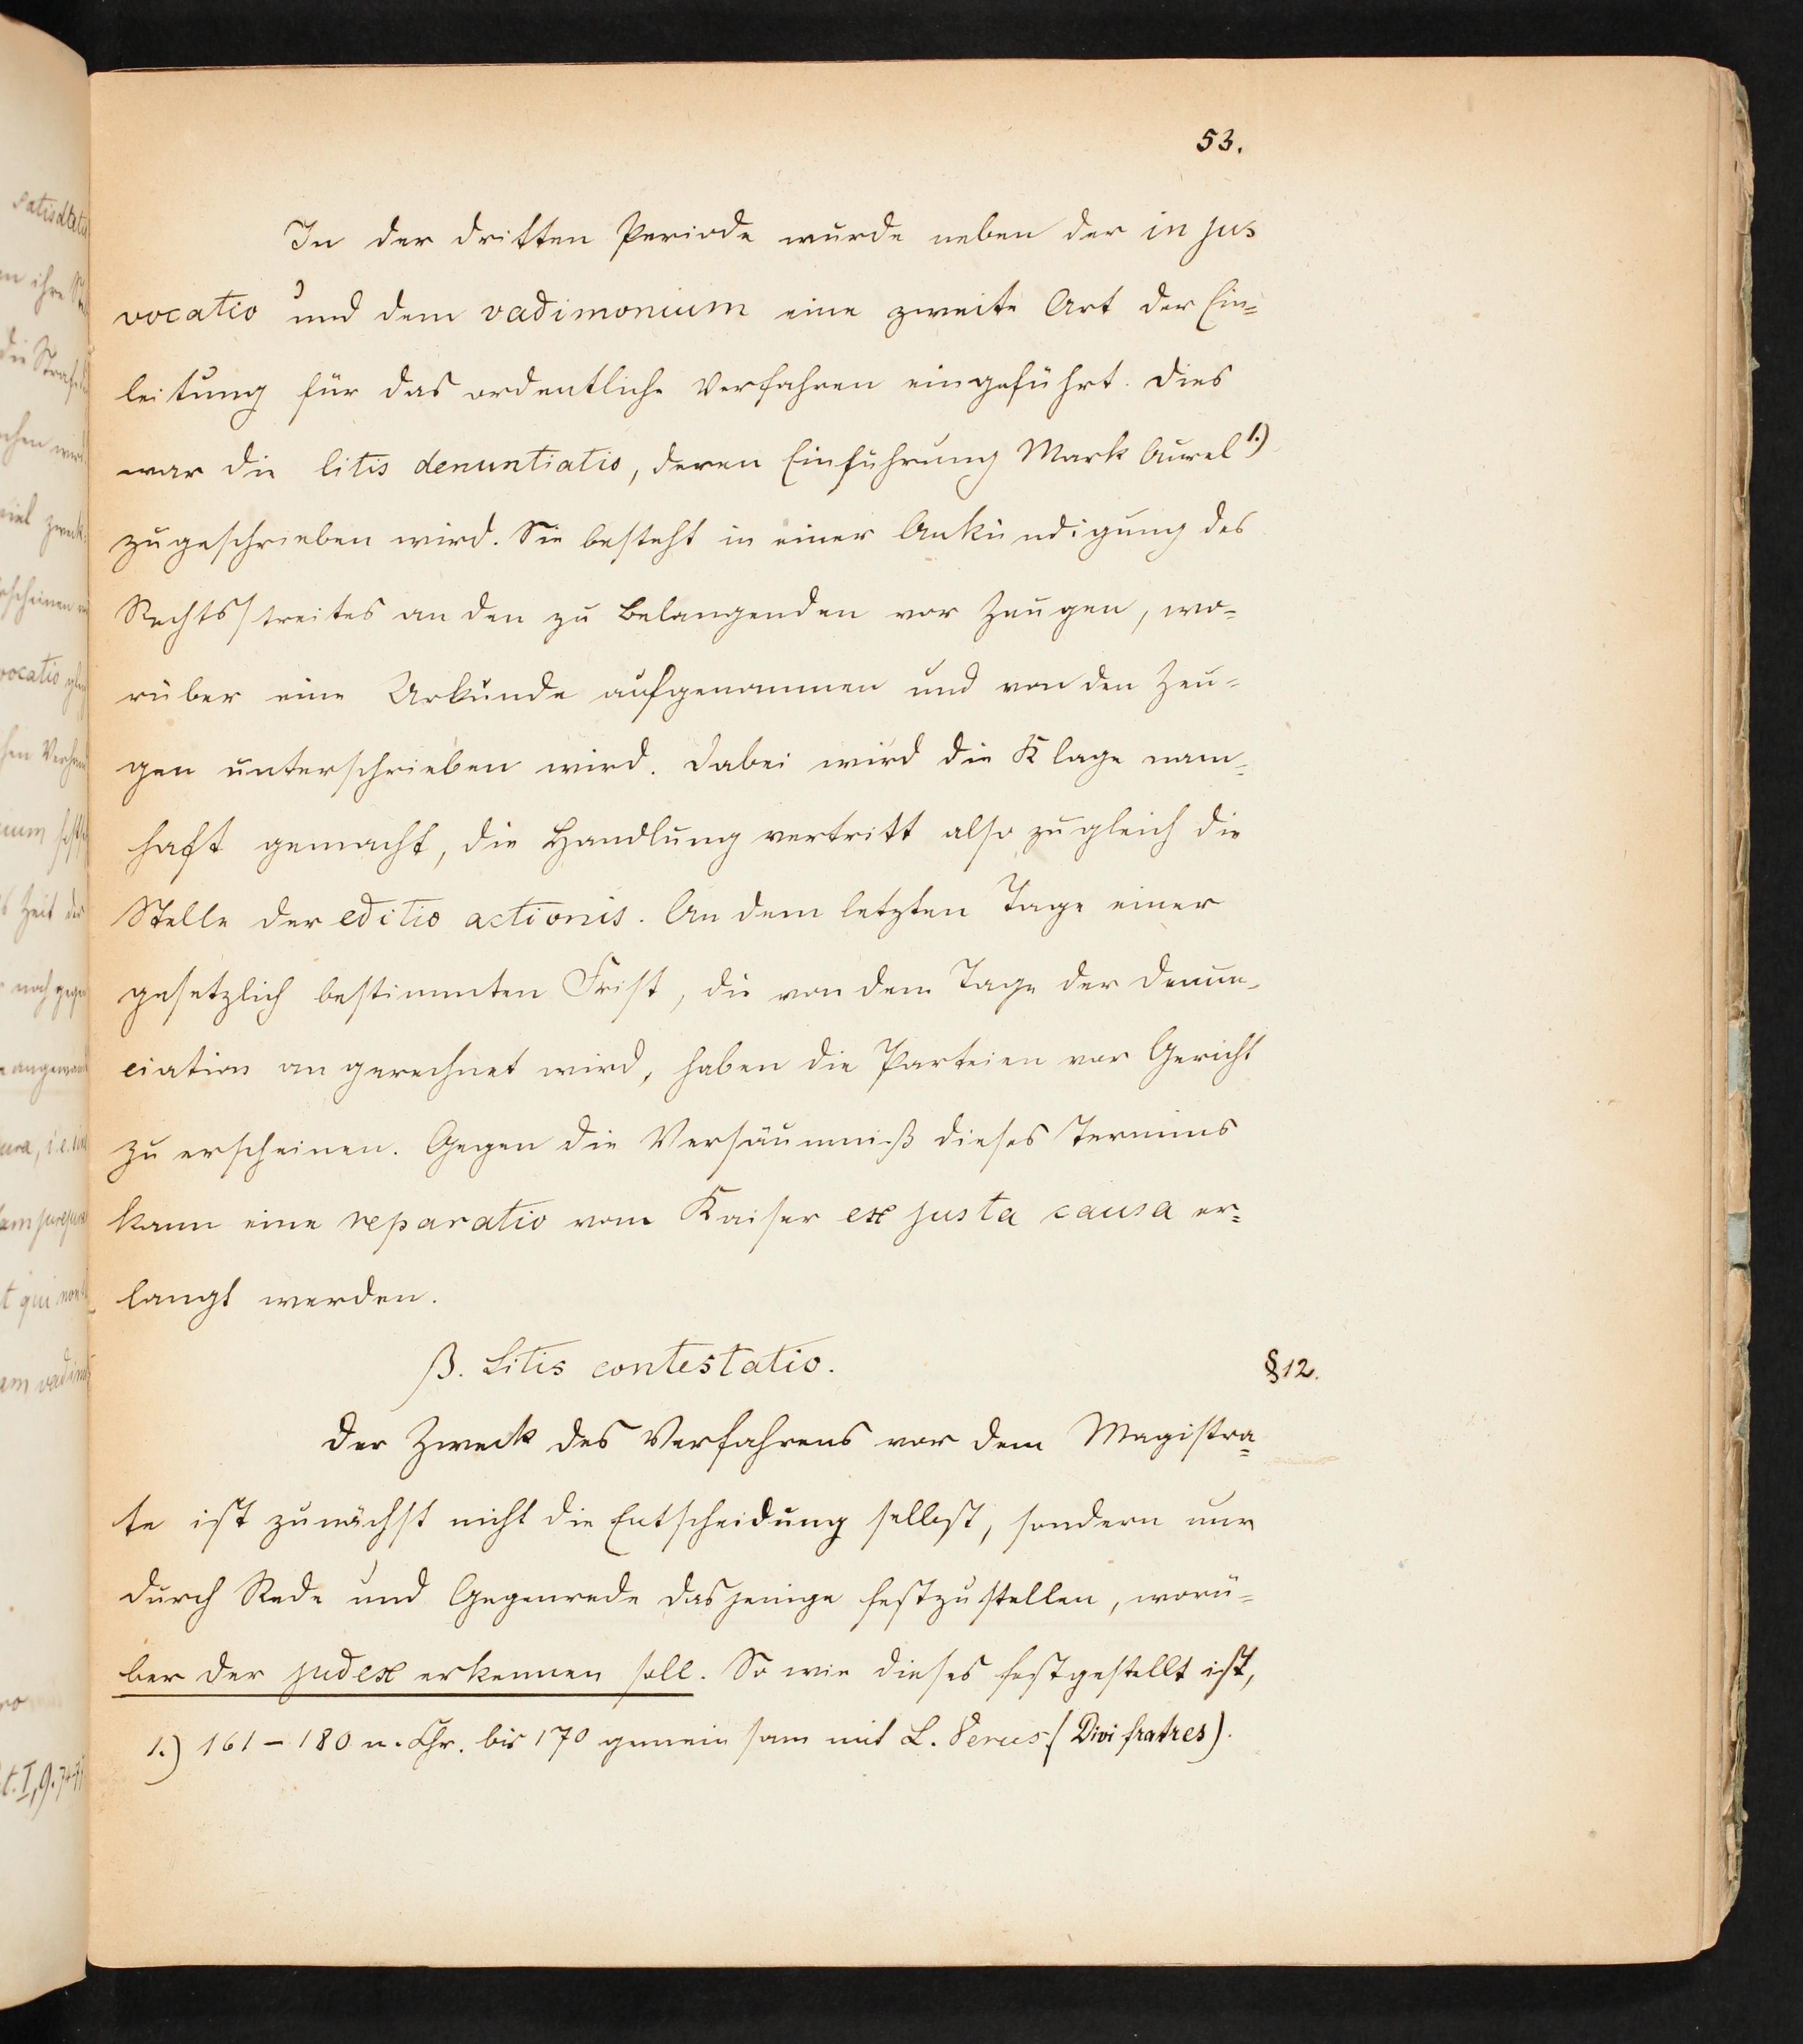 53.
In der dritten Periode wurde neben der in jus
vocatio und dem vadimonium eine zweite Art der Ein=
leitung für das ordentliche Verfahren eingeführt. Dies
war die litis denuntiatio, deren Einführung Mark Aurel 1.)
zugeschrieben wird. Sie besteht in einer Ankündigung des
Rechtsstreites an den zu Belangenden vor Zeugen, wo=
rüber eine Urkunde aufgenommen und von den Zeu=
gen unterschrieben wird. Dabei wird die Klage nam=
haft gemacht, die Handlung vertritt also zugleich die
Stelle der editio actionis. An dem letzten Tage einer
gesetzlich bestimmten Frist, die von dem Tage der Denun=
ciation an gerechnet wird, haben die Parteien vor Gericht
zu erscheinen. Gegen die Versäumniß dieses Termins
kann eine reparatio vom Kaiser ex justa causa er=
langt werden.
β. Litis contestatio.
§ 12.
Der Zweck des Verfahrens vor dem Magistra=
te ist zunächst nicht die Entscheidung selbst, sondern nur
durch Rede und Gegenrede dasjenige festzustellen, worü=
ber der judex erkennen soll. So wie dieses festgestellt ist,
1.) 161 – 180 n. Chr. bis 170 gemeinsam mit L. Verus (Divi fratres).